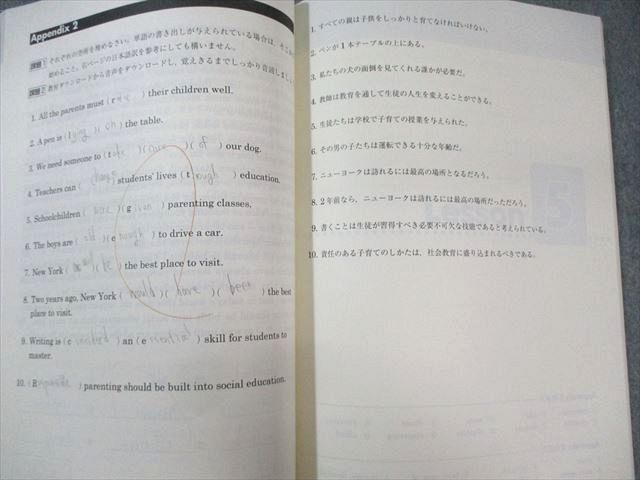 Appendix 2
それぞれの空所を埋めなさい。単語の書き出しが与えられている場合は、
始めること。右ページの日本語訳を参考にしても構いません。
教材ダウンロードから音声をダウンロードし、覚えきるまでしっかり音読しましょう
1. All the parents must (r ) their children well.
2. A pen is (lying)(on) the table.
3. We need someone to (take)(care)(of) our dog.
4. Teachers can (change) students' lives (through) education.
5. Schoolchildren (were)(given) parenting classes.
6. The boys are (old)(enough) to drive a car.
7. New York ( )(be) the best place to visit.
8. Two years ago, New York (would)(have)(been) the best
place to visit.
9. Writing is (c ) an (essential) skill for students to
master.
10. (R ) parenting should be built into social education.
1. すべての親は子供をしっかりと育てなければいけない。
2. ペンが1本テーブルの上にある。
3. 私たちの犬の面倒を見てくれる誰かが必要だ。
4. 教師は教育を通して生徒の人生を変えることができる。
5. 生徒たちは学校で子育ての授業を与えられた。
6. その男の子たちは運転できる十分な年齢だ。
7. ニューヨークは訪れるには最高の場所となるだろう。
8. 2年前なら、ニューヨークは訪れるには最高の場所だっただろう。
9. 書くことは生徒が習得すべき必要不可欠な技能であると考えられている。
10. 責任のある子育てのしかたは、社会教育に盛り込まれるべきである。